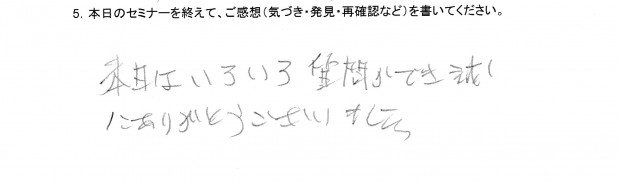 5. 本日のセミナーを終えて、ご感想(気づき・発見・再確認など)を書いてください。
本日はいろいろ質問ができ
にありがとうございました